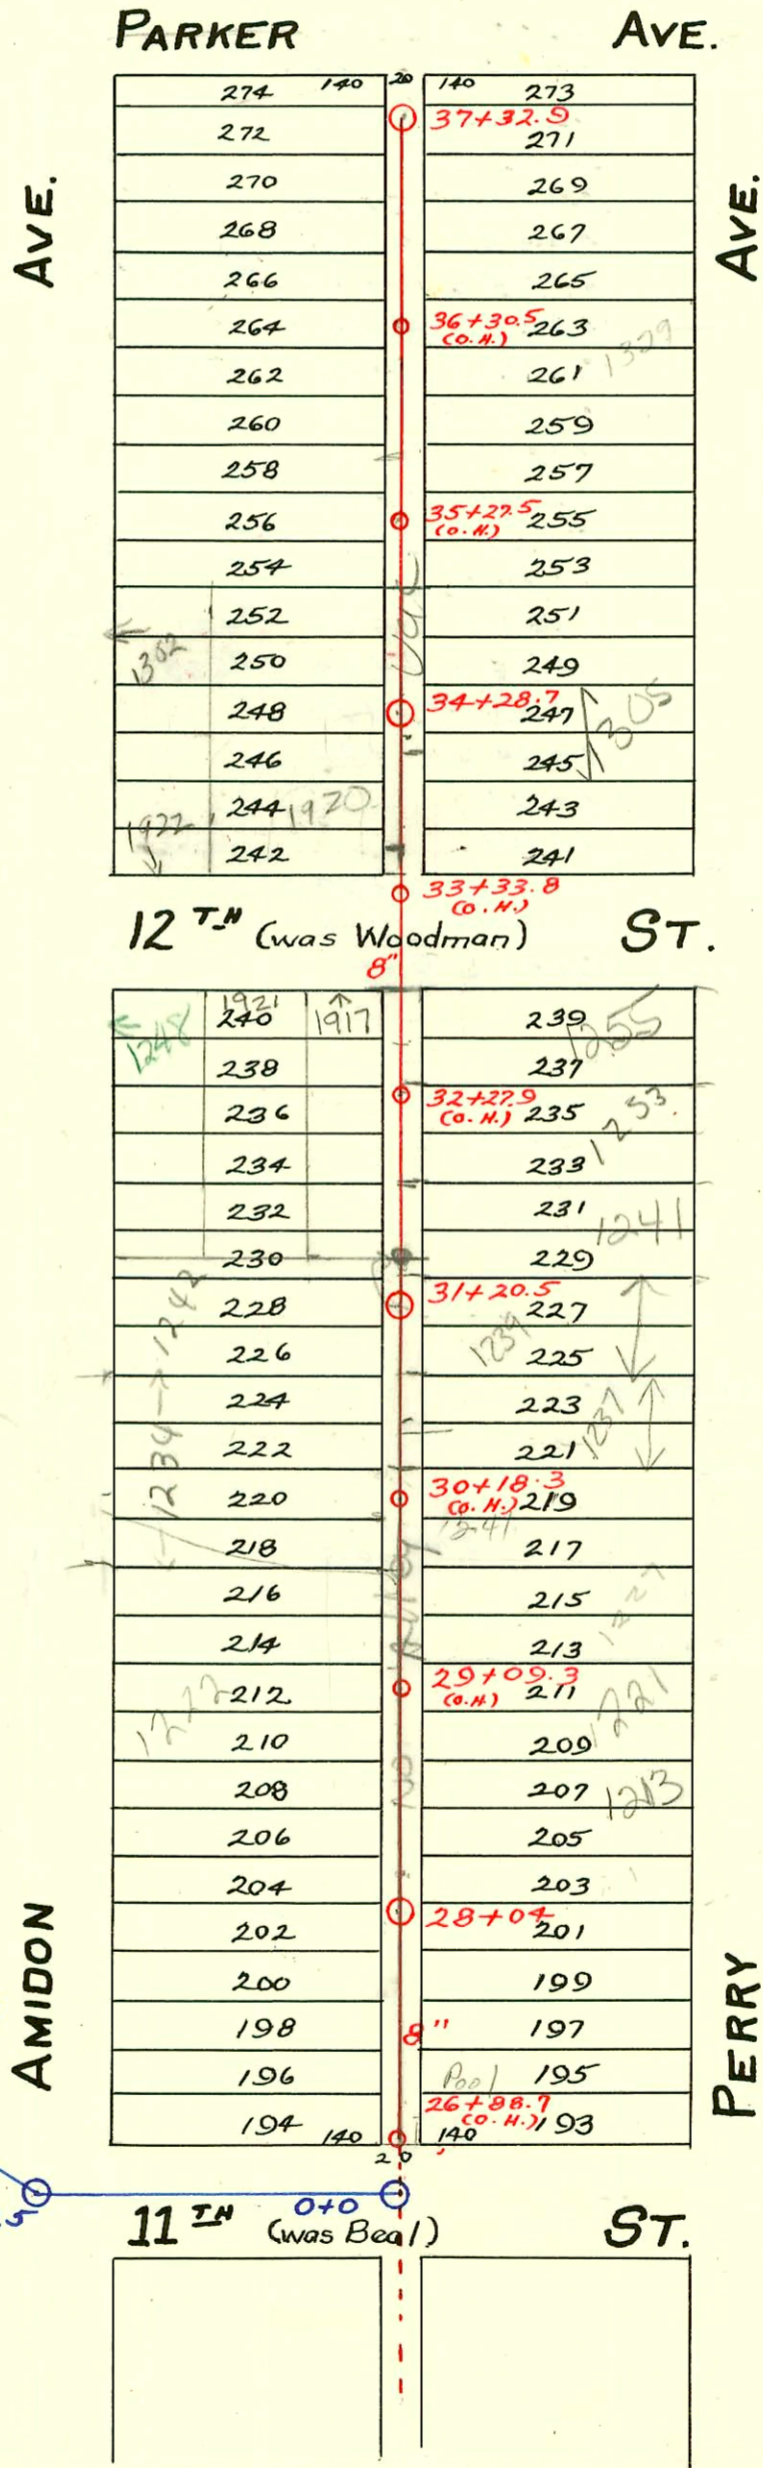 PARKER AVE.
AVE. AVE.
274 140 20 140 273
37+32.9
272 271
270 269
268 267
266 265
264 36+30.5 263
(O.H.)
1329
262 261
260 259
258 257
256 35+27.5 255
(O.H.)
254 253
252 251
1302
250 249
248 34+28.7 247
1305
246 245
244 1920 243
1922
242 241
33+33.8
(O.H.)
12TH (was Woodman) ST.
8"
1921
240 1917 239
1248 1255
238 237
236 32+27.9 235
(O.H.)
1253
234 233
232 231
1241
230 229
31+20.5
228 227
1234 → 1242
1239
226 225
224 223
1237
222 221
30+18.3
220 (O.H.) 219
1241
218 217
216 215
214 213
29+09.3
212 (O.H.) 211
1222 1221
210 209
208 207 1213
206 205
204 203
28+04
202 201
200 199
198 8" 197
196 Pool 195
26+88.7
194 140 (O.H.) 193
140
20
No Alley
AMIDON PERRY
5 0+0
11TH (was Beal) ST.